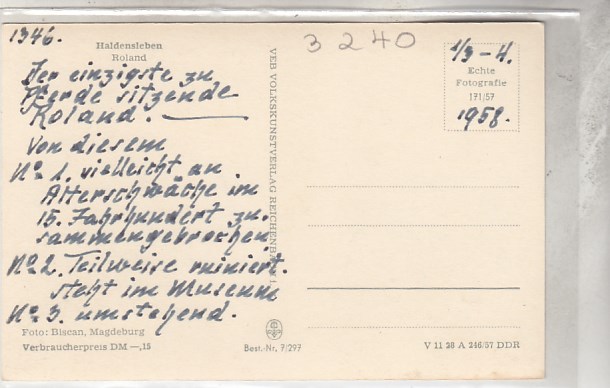 1346.
Haldensleben
Roland
Der einzigste zu
Pferde sitzende
Roland.
Von diesem
No 1. vielleicht an
Altersschwäche im
15. Jahrhundert zu-
sammengebrochen
No 2. Teilweise ruiniert.
steht im Museum
No 3. umstehend.
Foto: Biscan, Magdeburg
Verbraucherpreis DM —,15
VEB VOLKSKUNSTVERLAG REICHENBACH
Best.-Nr. 7/297
3240
1/3 - 4.
Echte
Fotografie
171/57
1958.
V 11 28 A 246/57 DDR